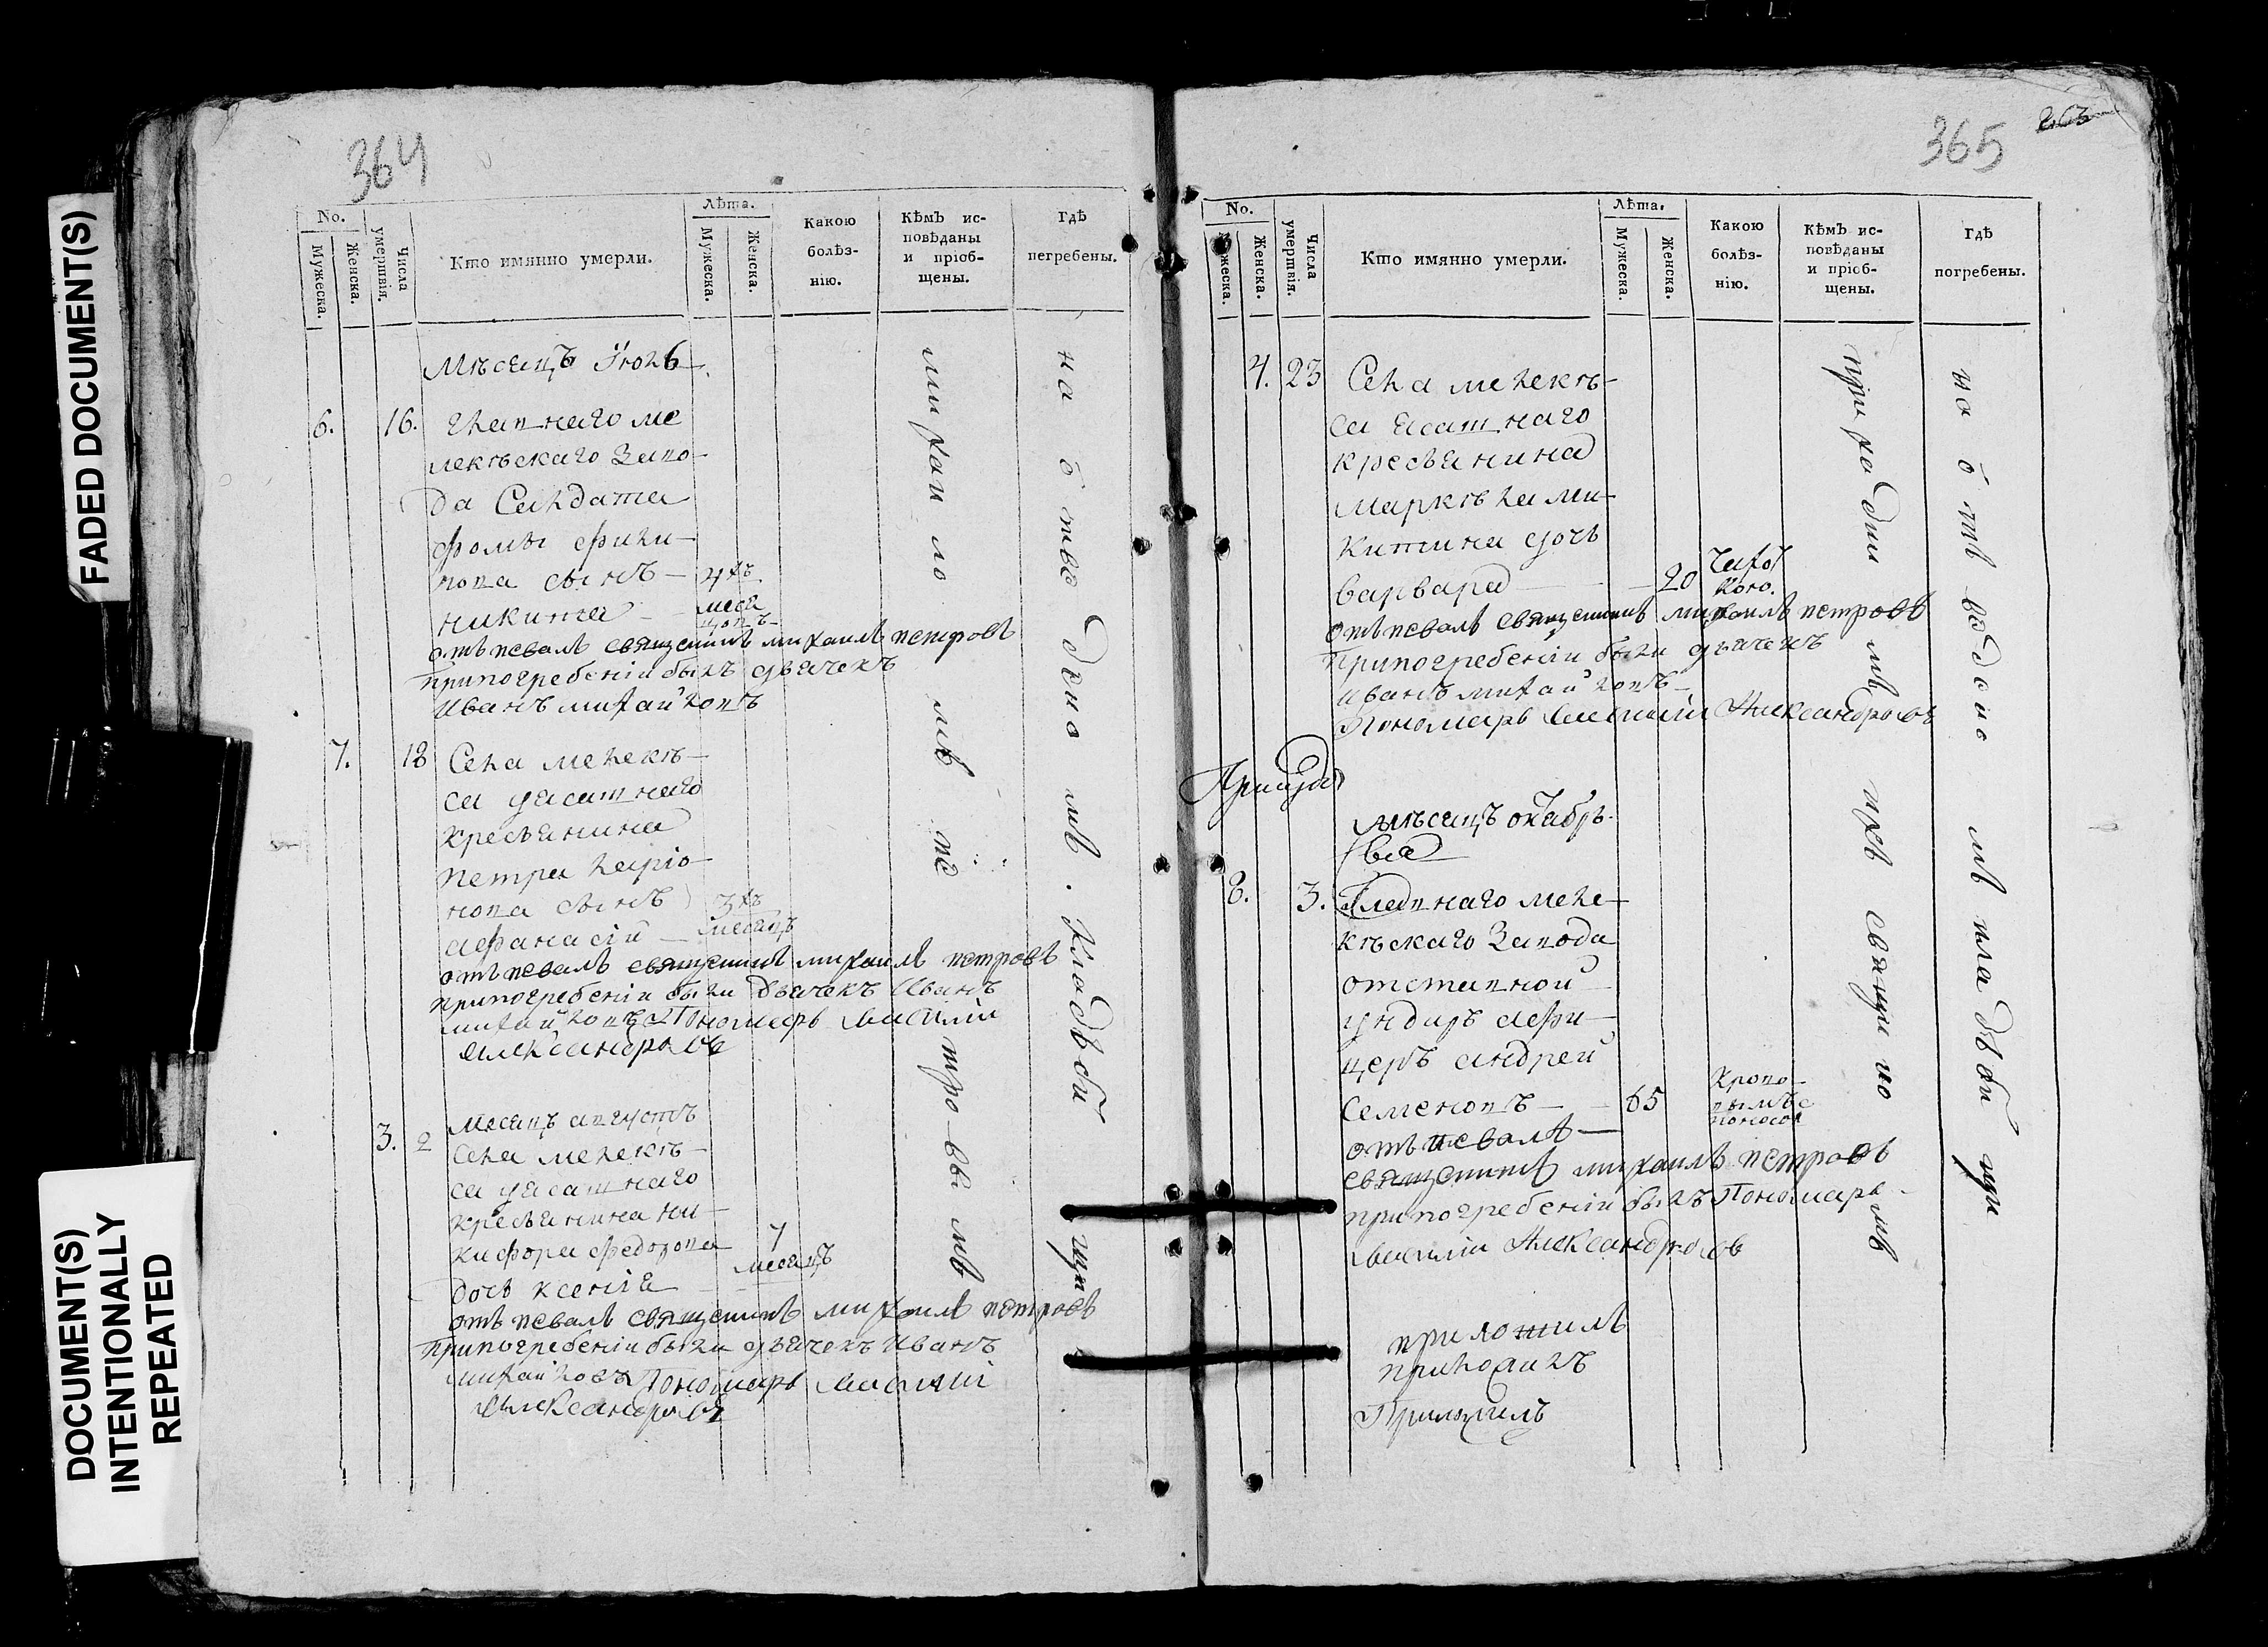 FADED DOCUMENT(S)
DOCUMENT(S)
INTENTIONALLY
REPEATED
364
No.
Мужеска.
Женска.
Числа
умертвія.
Кто имянно умерли.
Лѣта.
Мужеска.
Женска.
Какою
болѣз-
нію.
Кѣмъ ис-
повѣданы
и пріоб-
щены.
Гдѣ
погребены.
Мѣсяцъ Іюль
6. 16.
лекѣскаго Заво-
да Салдата
Фомы Фили-
пова сынъ 4 хъ
никита меся
цовъ
отъ певалъ священникъ михаилъ петровъ
припогребеніи былъ дьячекъ
Иванъ михайловъ
7. 18 Села мелекѣ-
са ясашнаго
крестьянина
петра ларіо-
нова сынъ 3 хъ
афанасій месяцъ
отъ певалъ священникъ михаилъ петровъ
припогребеніи были дьячекъ Иванъ
михайловъ Пономарь василій
александровъ
Месяцъ августъ
3. 2 Села мелекѣ-
са ясашнаго
крестьянина ни-
кифора федорова 7
дочь ксенія месяцъ
отъ певалъ священникъ михаилъ петровъ
припогребеніи были дьячекъ Иванъ
михайловъ Пономарь василій
александровъ
михаиломъ петровымъ
на отведеномъ кладъбищи
365
No.
Мужеска.
Женска.
Числа
умертвія.
Кто имянно умерли.
Лѣта.
Мужеска.
Женска.
Какою
болѣз-
нію.
Кѣмъ ис-
повѣданы
и пріоб-
щены.
Гдѣ
погребены.
4. 23 Села мелекѣ-
са ясашнаго
крестьянина
маркѣла ми-
китина дочь
варвара 20 Чахот
кою.
отъ певалъ священникъ михаилъ петровъ
припогребеніи были дьячекъ
Иванъ михайловъ
Пономарь василій Александровъ
мѣсяцъ октябрь
8. 3. меле-
кѣскаго Завода
отставной
ундиръ афи-
церъ андрей
Семеновъ 65 Крово-
вымъ с
поносом
отъ певалъ
священникъ михаилъ петровъ
припогребеніи былъ Пономарь
василій Александровъ
приложилъ
Приложилъ